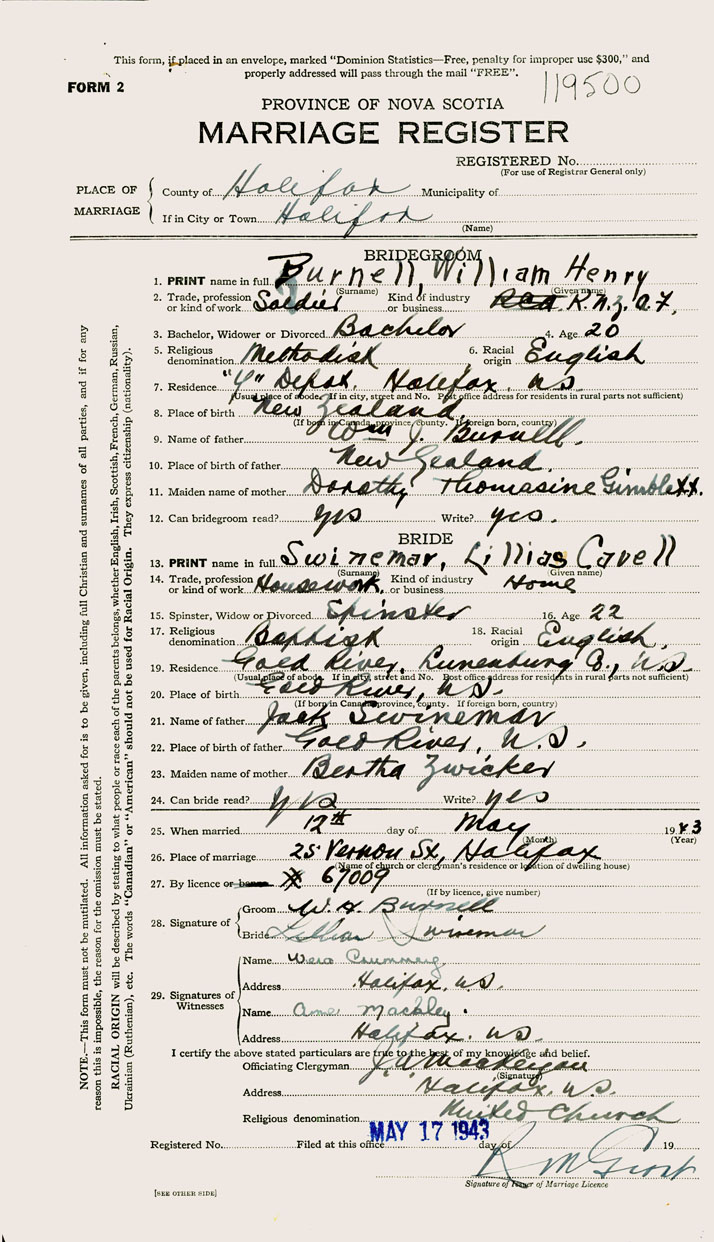 This form, if placed in an envelope, marked "Dominion Statistics—Free, penalty for improper use $300," and
properly addressed will pass through the mail "FREE".
FORM 2
119500
PROVINCE OF NOVA SCOTIA
MARRIAGE REGISTER
REGISTERED No.
(For use of Registrar General only)
PLACE OF MARRIAGE
County of Halifax Municipality of
If in City or Town Halifax
(Name)
BRIDEGROOM
1. PRINT name in full Burnell, William Henry
(Surname) (Given name)
2. Trade, profession or kind of work Soldier Kind of industry or business R.N.Z.A.F.
3. Bachelor, Widower or Divorced Bachelor 4. Age 20
5. Religious denomination Methodist 6. Racial origin English
7. Residence "Y" Depot, Halifax, NS
(Usual place of abode. If in city, street and No. Post office address for residents in rural parts not sufficient)
8. Place of birth New Zealand
(If born in Canada, province, county. If foreign born, country)
9. Name of father Wm J. Burnell.
10. Place of birth of father New Zealand.
11. Maiden name of mother Dorothy Thomasine Gimblett.
12. Can bridegroom read? yes Write? yes.
BRIDE
13. PRINT name in full Swinemar, Lillias Cavell
(Surname) (Given name)
14. Trade, profession or kind of work Housework Kind of industry or business Home
15. Spinster, Widow or Divorced Spinster 16. Age 22
17. Religious denomination Baptist 18. Racial origin English.
19. Residence Gold River, Lunenburg Co., N.S.
(Usual place of abode. If in city, street and No. Post office address for residents in rural parts not sufficient)
20. Place of birth Gold River, N.S.
(If born in Canada, province, county. If foreign born, country)
21. Name of father Jack Swinemar
22. Place of birth of father Gold River, N.S.
23. Maiden name of mother Bertha Zwicker
24. Can bride read? yes Write? yes
25. When married 12th day of May 1943
(Month) (Year)
26. Place of marriage 25 Vernon St, Halifax
(Name of church or clergyman's residence or location of dwelling house)
27. By licence or banns 67009
(If by licence, give number)
28. Signature of
Groom W. H. Burnell
Bride Lillian Swinemar
29. Signatures of Witnesses
Name
Address Halifax, N.S.
Name Mackley
Address Halifax, N.S.
I certify the above stated particulars are true to the best of my knowledge and belief.
Officiating Clergyman
(Signature)
Address Halifax, N.S.
Religious denomination United Church
Registered No. Filed at this office MAY 17 1943 day of 19
Signature of Issuer of Marriage Licence
[SEE OTHER SIDE]
NOTE.—This form must not be mutilated. All information asked for is to be given, including full Christian and surnames of all parties, and if for any
reason this is impossible, the reason for the omission must be stated.
RACIAL ORIGIN will be described by stating to what people or race each of the parents belongs, whether English, Irish, Scottish, French, German, Russian,
Ukrainian (Ruthenian), etc. The words "Canadian" or "American" should not be used for Racial Origin. They express citizenship (nationality).